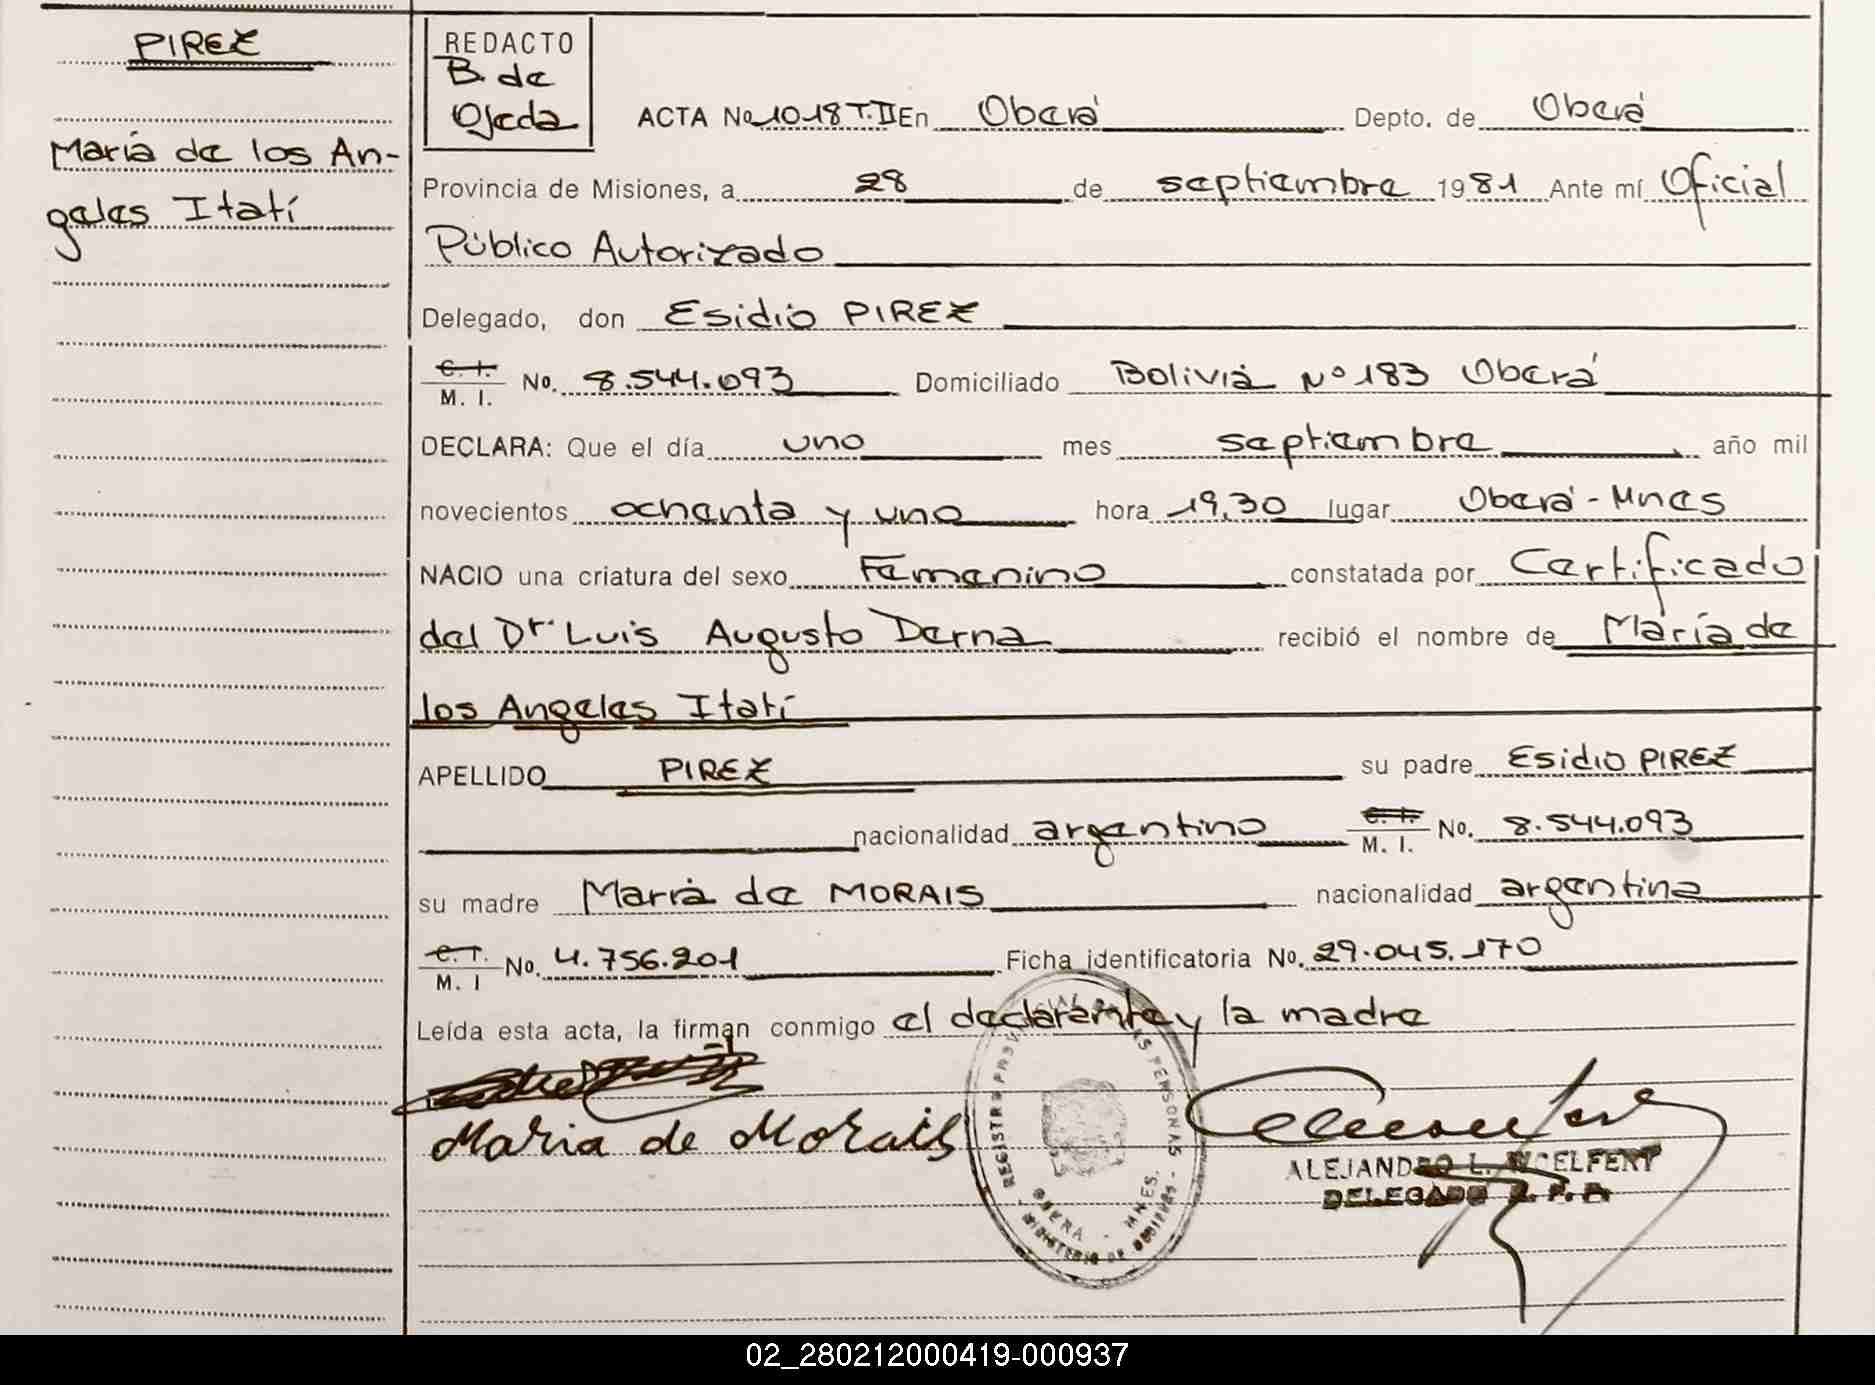 PIREZ
María de los An-
geles Itatí
REDACTO
B. de
Ojeda
ACTA No 1018 T.II En Oberá Depto. de Oberá
Provincia de Misiones, a 28 de septiembre 1981 Ante mí Oficial
Público Autorizado
Delegado, don Esidio PIREZ
C. I.
M. I. No. 8.544.093 Domiciliado Bolivia Nº 183 Oberá
DECLARA: Que el día uno mes septiembre año mil
novecientos ochenta y uno hora 19,30 lugar Oberá - Mnes
NACIO una criatura del sexo Femenino constatada por Certificado
del Dr. Luis Augusto Derna recibió el nombre de María de
los Angeles Itatí
APELLIDO PIREZ su padre Esidio PIREZ
nacionalidad argentino C. I. M. I. No. 8.544.093
su madre María de MORAIS nacionalidad argentina
C. I.
M. I No. 4.756.201 Ficha identificatoria No. 29.045.170
Leída esta acta, la firman conmigo el declarante y la madre
Maria de Morais
REGISTRO PROVINCIAL DE LAS PERSONAS
OBERA - MNES.
MINISTERIO DE GOBIERNO
ALEJANDRO L. WOELFERT
DELEGADO R. P. P.
02_280212000419-000937